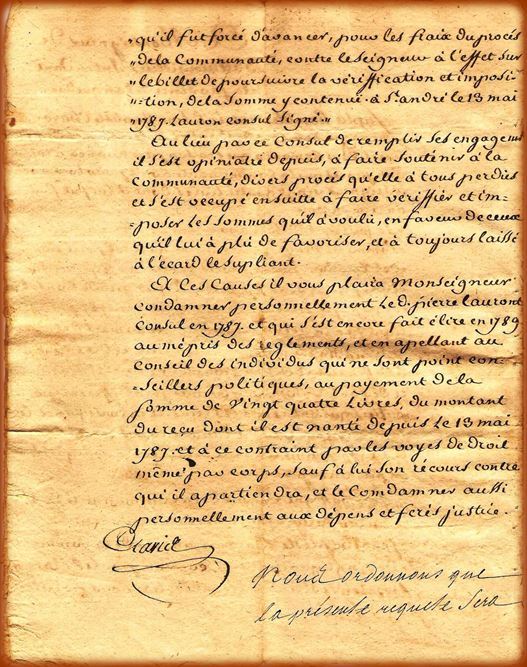 "qu'il fut forcé d'avancer, pour les fraix du procès
"de la Communauté, contre le seigneur à l'effet sur
"le billet de poursuivre la vériffication et imposi-
"tion, de la somme y contenuë. à St. andré le 13 mai
"1787. Lauron consul signé."
Au lieu par ce Consul de remplir ses engagemens
il s'est opiniatré depuis, à faire soutenir à la
Communauté, divers procès qu'elle à tous perdies
et s'est occupé ensuitte à faire vériffier et im=
poser les sommes qu'il à voulù, en faveur de ceux
qu'il lui à plù de favoriser, et à toujours laissé
à l'écard le supliant.
A Ces Causes il vous plaira Monseigneur
Condamner personnellement Le d. pierre lauront
Consul en 1787. et qui s'est encore fait élire en 1789
au mépris des reglements, et en apellant au
Conseil des individus qui ne sont point con-
seillers politiques, au payement de la
somme de Vingt quatre Livres, du montant
du reçu dont il est nanti depuis le 13 mai
1787. et à ce contraint par les voyes de droit
même par corps, sauf à lui son récours contre
qu'il apartiendra, et le Comdamner aussi
personnellement aux dépens et ferés justice.
Nous ordonnons que
la présente requete sera